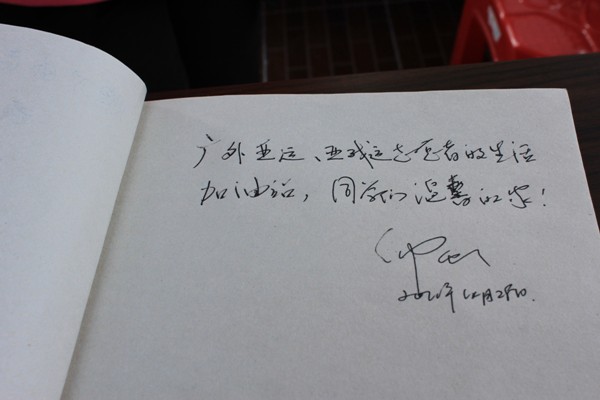 广外亚运、亚残运志愿者的生活
加油站，同学们温馨的家！
2010年12月28日.